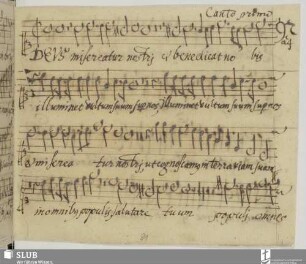 Canto primo
DEUS misereatur nostri et benedicat no bis
illuminet vultum suum super nos illuminet vultum suum super nos
et misereatur nostri, ut cognoscamus in terra viam tuam
in omnibus populis salutare tuum populi omnes
SLUB
Wir führen Wissen.